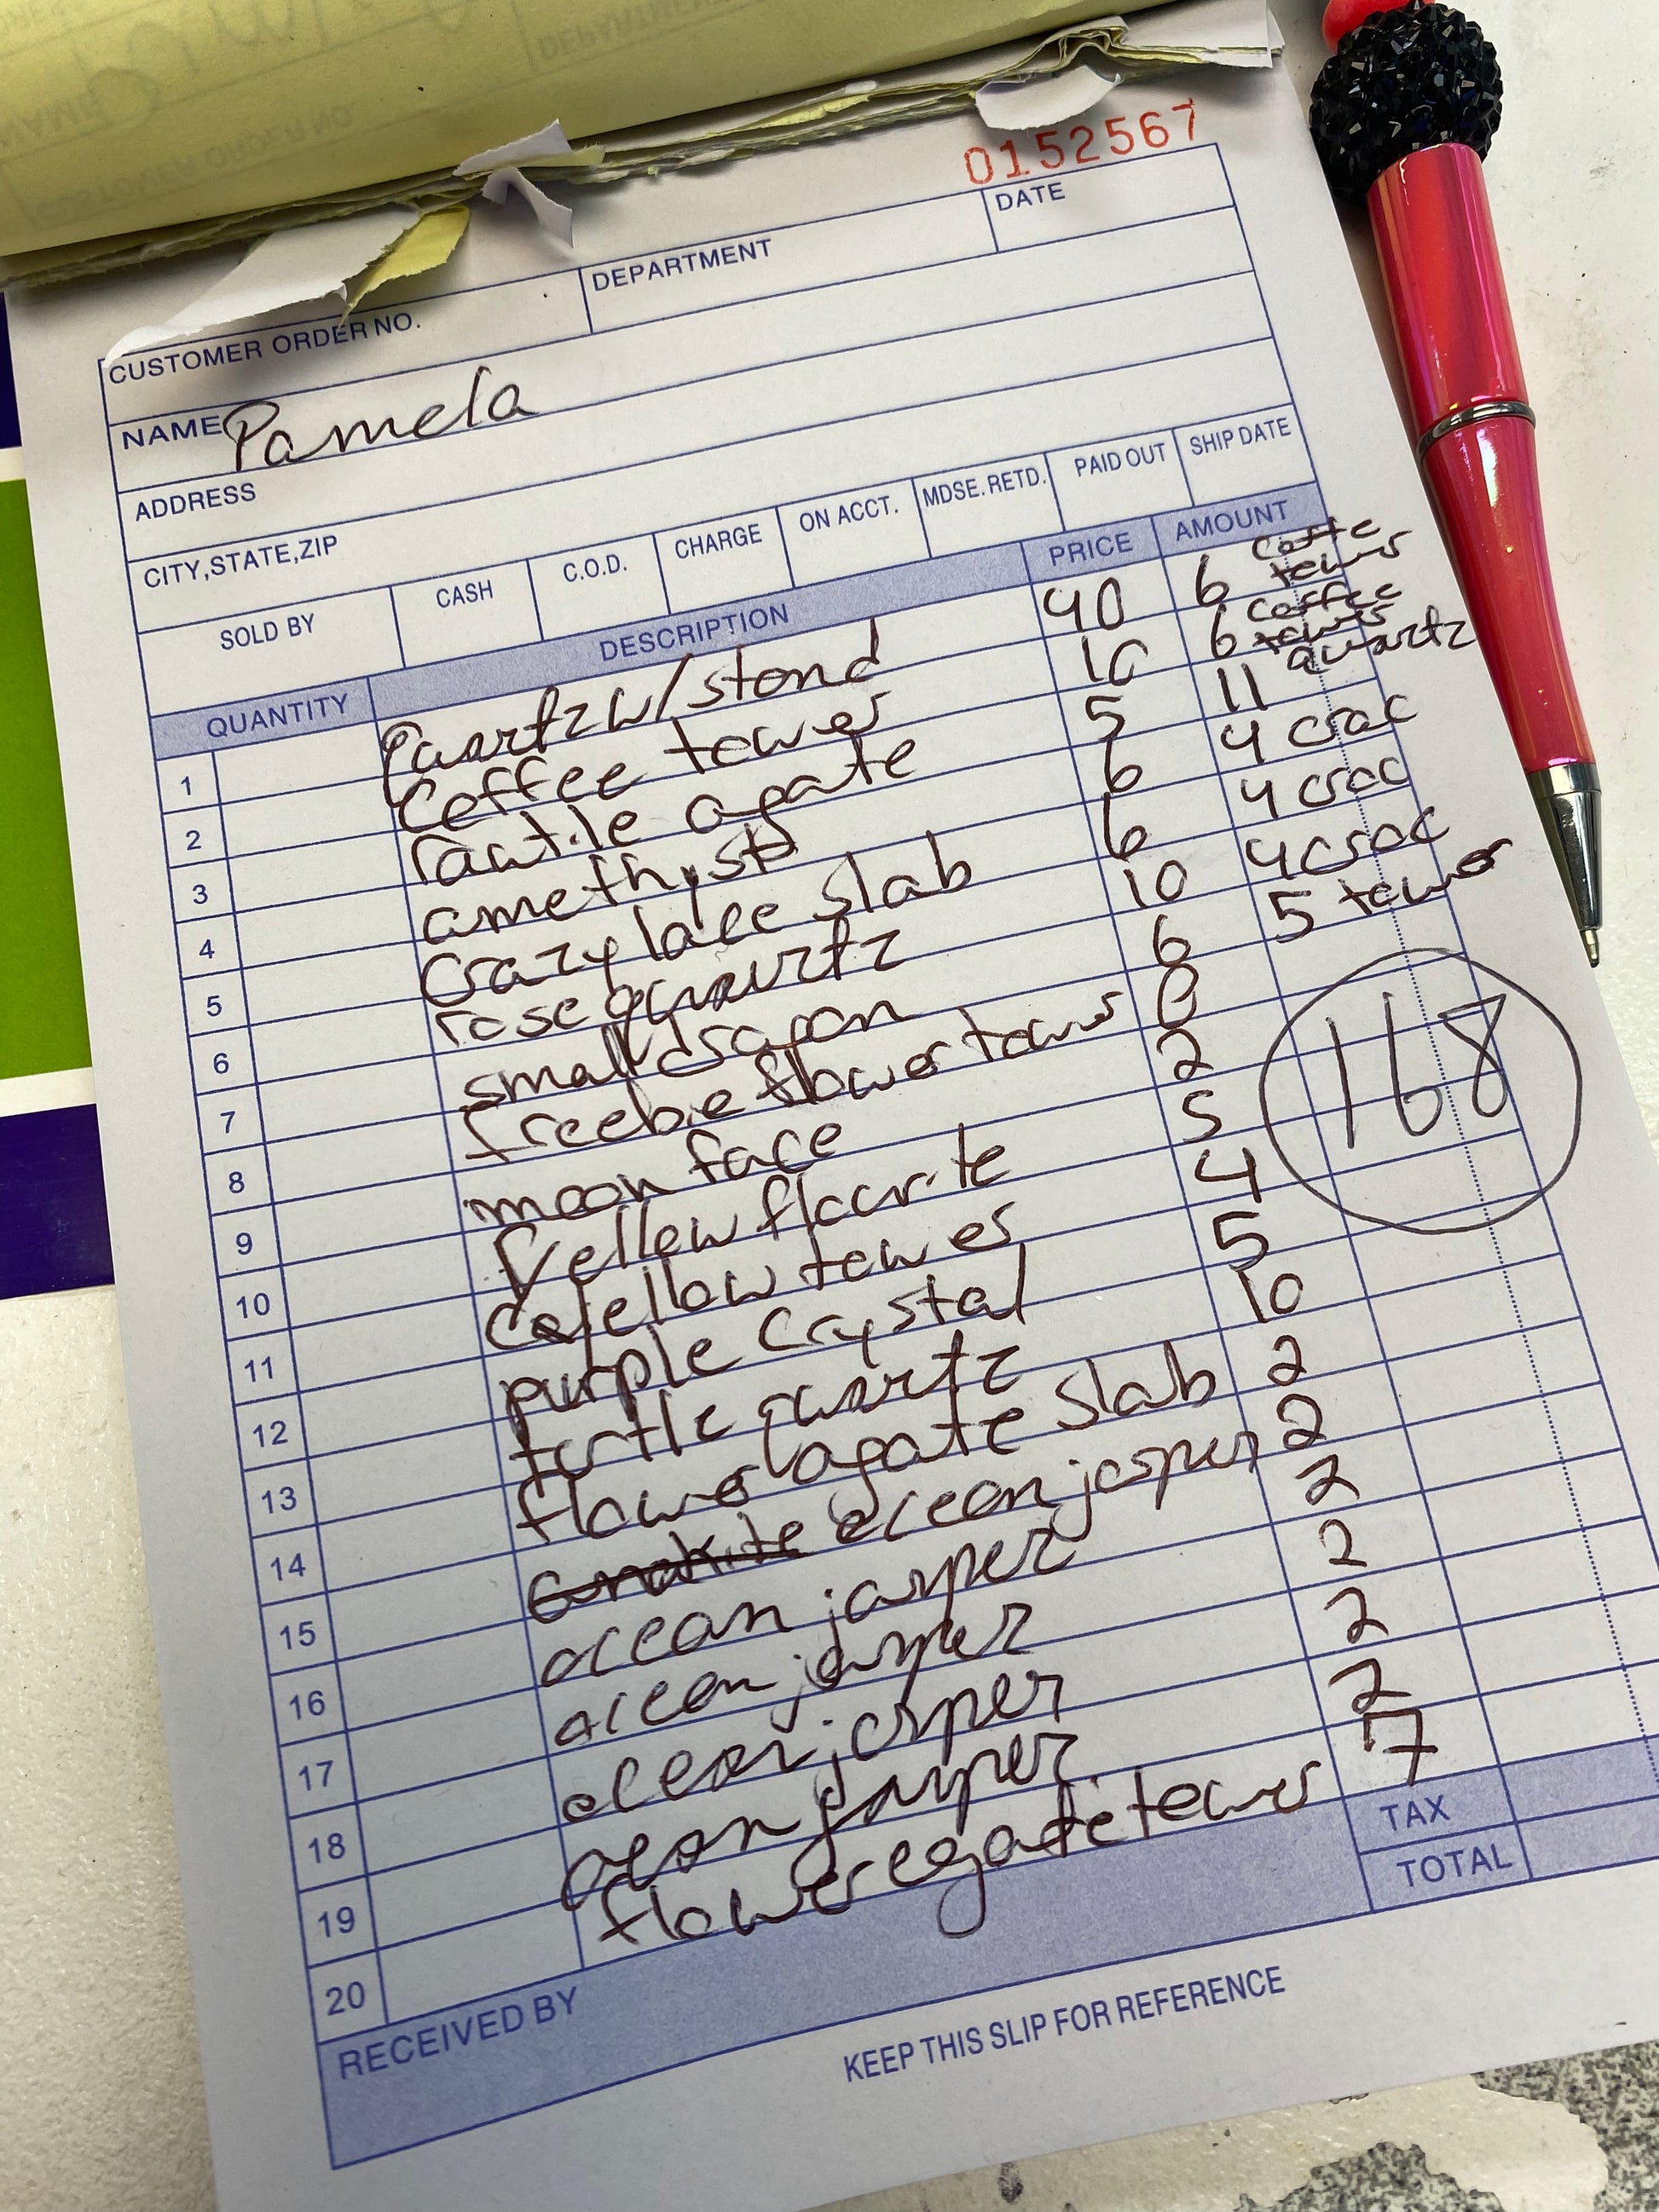 0152567
CUSTOMER ORDER NO. DEPARTMENT DATE
NAME Pamela
ADDRESS
CITY,STATE,ZIP
SOLD BY CASH C.O.D. CHARGE ON ACCT. MDSE. RETD. PAID OUT SHIP DATE
QUANTITY DESCRIPTION PRICE AMOUNT
1 Quartz w/stand 40 6 coffe tower
2 Coffee tower 10 6 coffee tower
3 rautile agate 5 11 quartz
4 amethyst 6 4 crac
5 Crazy lace slab 6 4 crac
6 rose quartz 10 4 crac
7 small dragon 6 5 tower
8 freebie flower tower 0
9 moon face 2
10 yellow flourite 5
11 yellow tower 4
12 purple crystal 5
13 turtle quartz 10
14 flower agate slab 2
15 ocean jasper 2
16 ocean jasper 2
17 ocean jasper 2
18 ocean jasper 2
19 ocean jasper 2
20 flower agate tower 7
168
TAX
TOTAL
RECEIVED BY
KEEP THIS SLIP FOR REFERENCE